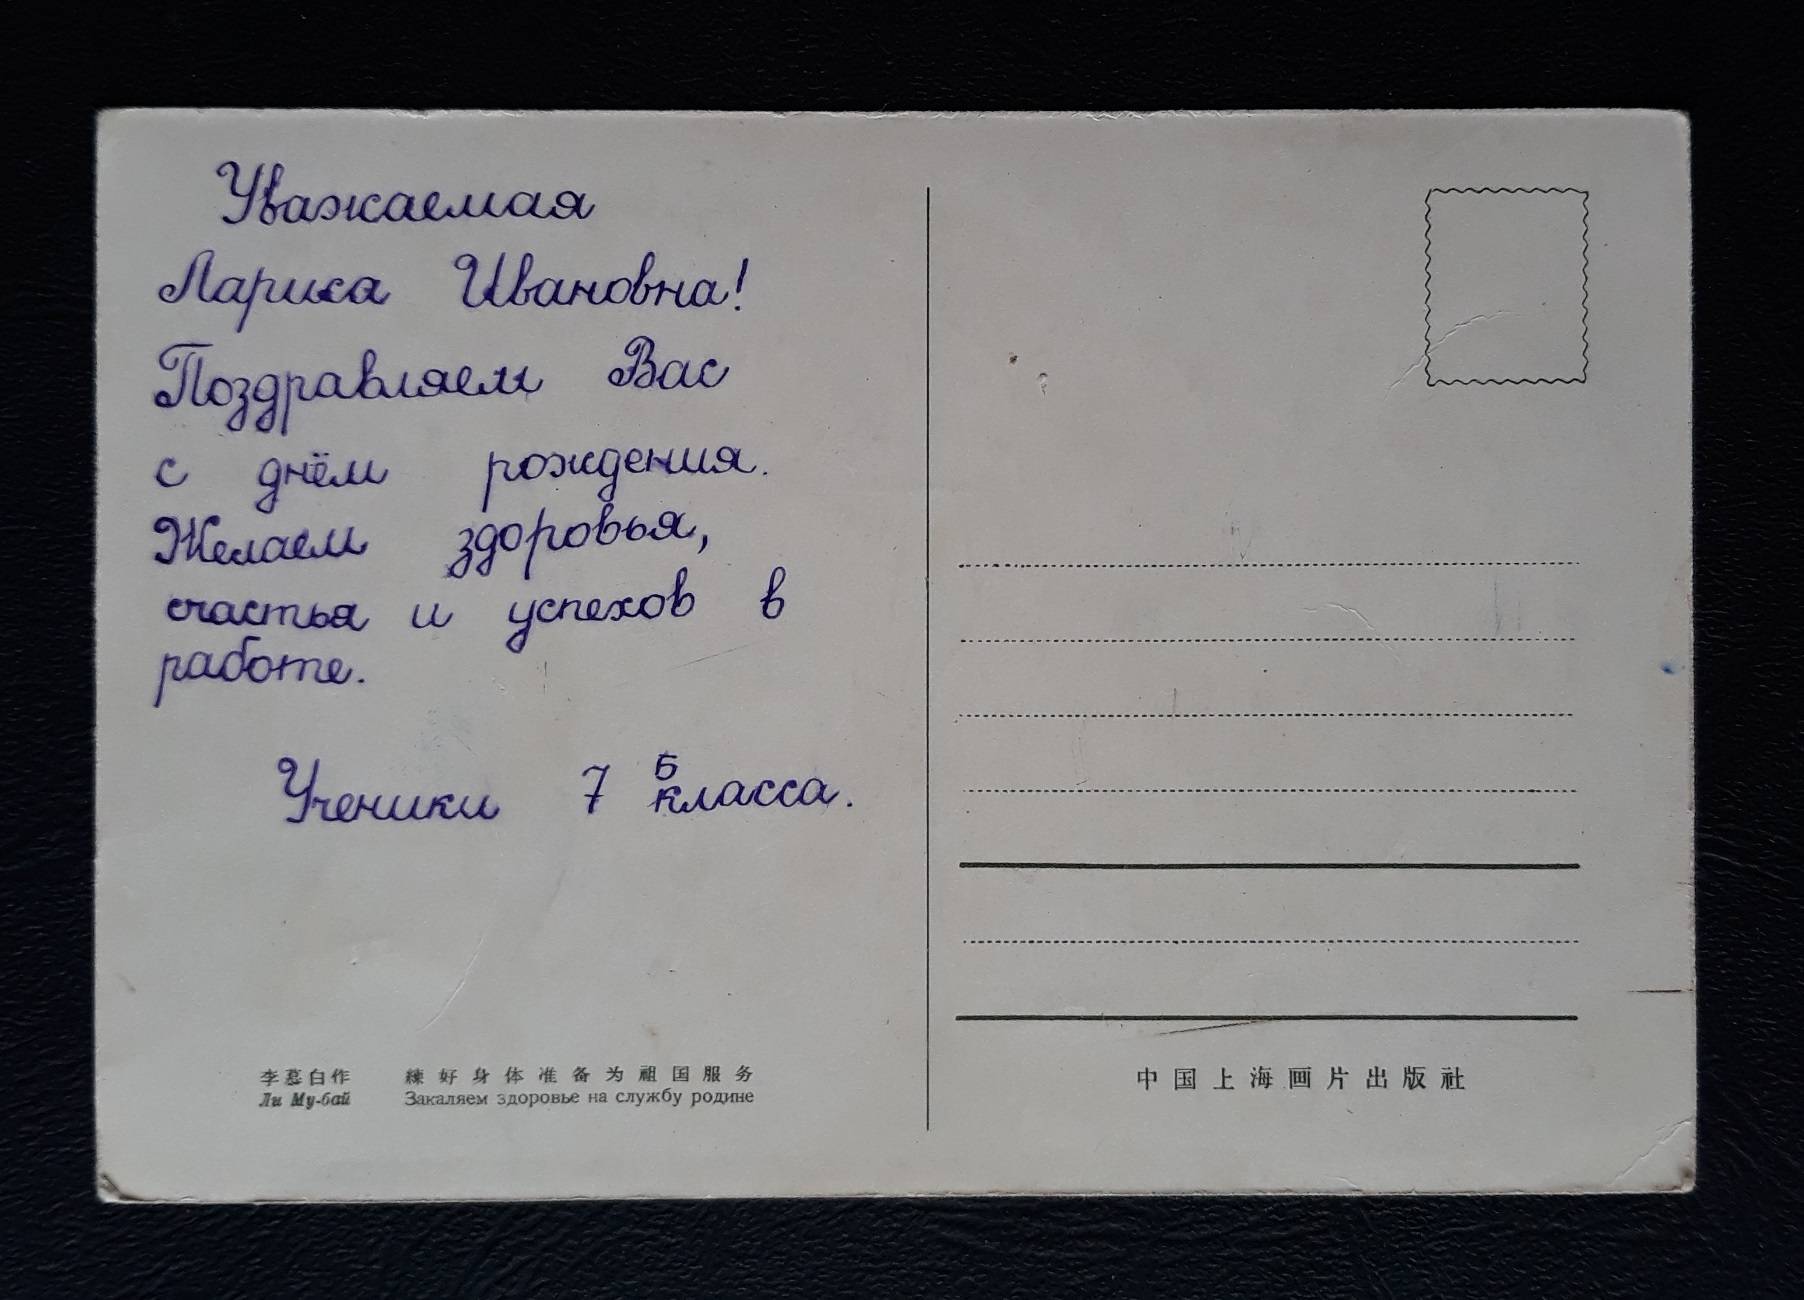 Уважаемая
Лариса Ивановна!
Поздравляем Вас
с днём рождения.
Желаем здоровья,
счастья и успехов в
работе.
Ученики 7 Б класса.
李慕白作 練好身体准备为祖国服务
Ли Му-бай Закаляем здоровье на службу родине
中国上海画片出版社